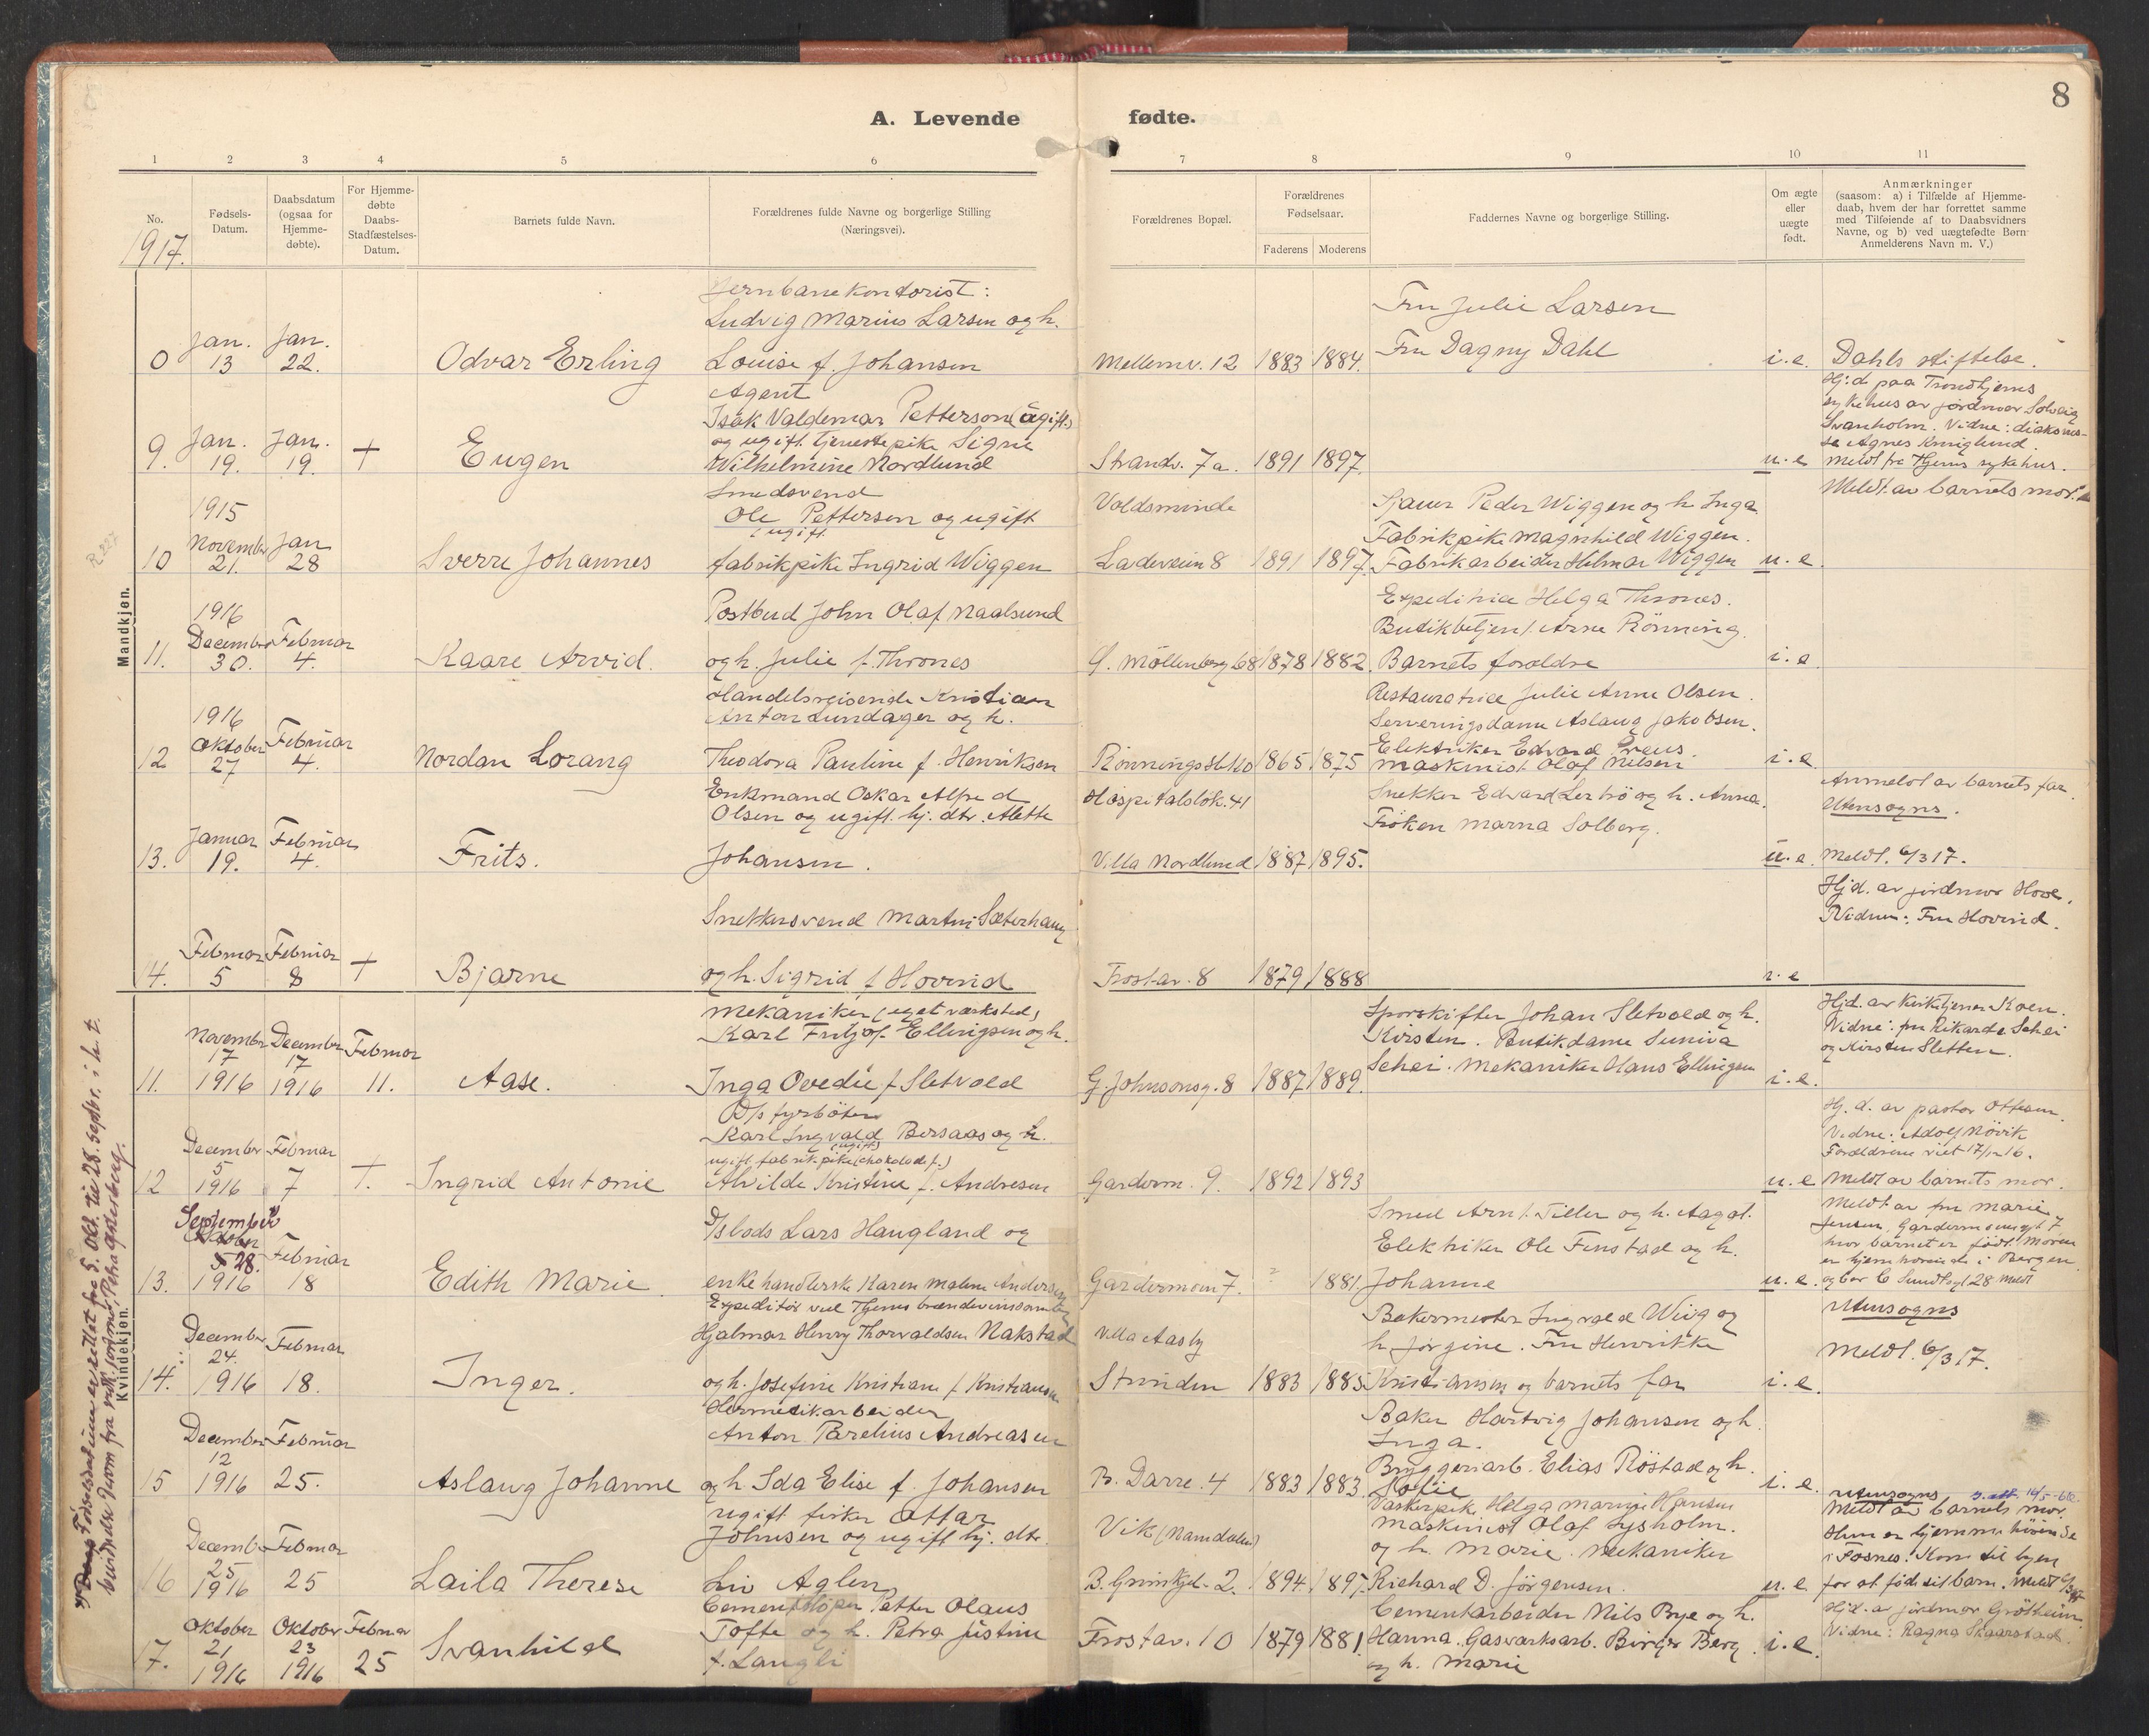 8
A. Levende fødte.
1 2 3 4 5 6 7 8 9 10 11
No.
Fødsels-
Datum.
Daabsdatum
(ogsaa for
Hjemme-
døbte).
For Hjemme-
døbte
Daabs-
Stadfæstelses-
Datum.
Barnets fulde Navn.
Forældrenes fulde Navne og borgerlige Stilling
(Næringsvei).
Forældrenes Bopæl.
Forældrenes
Fødselsaar.
Faderens Moderens
Faddernes Navne og borgerlige Stilling.
Om ægte
eller
uægte
født.
Anmærkninger
(saasom: a) i Tilfælde af Hjemme-
daab, hvem der har forrettet samme
med Tilføiende af to Daabsvidners
Navne, og b) ved uægtefødte Børn
Anmelderens Navn m. V.)
1917.
Mandkjøn.
Jernbanekontorist:
Ludvig Marius Larsen og h.
Fru Julie Larsen
Jan. Jan.
Fru Dagny Dahl
0 13 22. Odvar Erling Louise f. Johansen Mellemv. 12 1883 1884. i.e. Dahls stiftelse.
Agent
Isak Valdemar Petterson (ugift)
og ugift tjenestepike Signe
Hj.d paa Trondhjems
sykehus av jordmor Solveig
Svanholm. Vidne: diakonis-
se Agnes
Jan. Jan.
9. 19. 19. + Eugen Wilhelmine Nordlund Strandv. 7a. 1891 1897. u.e meldt fra Thjems sykehus.
Meldt av barnets mor.
Smedsvend
Ole Pettersen og ugift
ugift
Voldsminde
Sjauer Peder Wiggen og h. Inga
Fabrikpike Magnhild Wiggen.
1915
November Jan
10 21. 28 Sverre Johannes fabrikpike Ingrid Wiggen Ladeveien 8 1891 1897. Fabrikarbeider Helmar Wiggen u.e.
Postbud John Olaf Naalsund
Expeditrice Helga Thrones.
Butikbetjent Arne Rönning.
1916
December Februar
11. 30. 4. Kaare Arvid. og h. Julie f. Thrones Ø. Möllenberg 68 1878 1882. Barnets forældre i.e
Handelsreisende Kristian
Anton Lundager og h.
Restauratrice Julie Anne Olsen.
Serveringsdame Aslaug Jakobsen.
Elektriker Edvard Preus.
1916
Oktober Februar
12 27 4. Nordan Lorang Theodora Pauline f. Henriksen 1865 1875 Maskinist Olaf Nilsen i.e.
Enkmand Oskar Alfred
Olsen og ugift hj. dtr. Alette
Hospitalslök. 41
Snekker Edvard Lertrö og h. Anna.
Fröken Marna Solberg.
Anmeldt av barnets far.
Utensogns.
Januar Februar
13. 19. 4. Frits. Johansen. Villa Nordlund 1887 1895. u.e. Meldt. 6/3 17.
Snekkersvend Martin Sæterhaug
Hjd. av jordmor Hove.
Vidner: Fru Hovind.
Februar Februar
14. 5 8 + Bjarne og h. Sigrid f. Hovind Frostav. 8 1879 1888 i.e
Kvindekjøn.
Mekaniker (eget værksted)
Karl Fritjof Ellingsen og h.
Sporskifter Johan Sletvold og h.
Kirsten. Butikdame Suniva
Schei. Mekaniker Hans Ellingsen
Hjd. av kirketjener Koen.
Vidne: fru Rikarde Schei
og Kirsten Sletten.
November December Februar
17 17
11. 1916 1916 11. Aase. Inga Ovedie f. Sletvold G. Johnsonsg. 8 1887 1889. i.e.
D/s fyrböter
Karl Ingvald Bersaas og h.
(ugift)
ugift fabrikpike (chokolade f.)
Hj. d. av pastor Ottesen.
Vidne: Adolf Növik
Forældrene viet 17/12 16.
December Februar
5
12 1916 7 +. Ingrid Antonie Alvilde Kristine f. Andresen Garderm. 9. 1892 1893 u.e Meldt av barnets mor.
Lars Haugland og
Smed Arnt Tiller og h. Aagot.
Elektriker Ole Finstad og h.
Meldt av fru Marie
Jensen, Gardermoensgt 7
hvor barnet er født. Moren
er hjemhörende i Bergen
September
Oktober Februar
5 28.
13. 1916 18 Edith Marie enke handlerske Karen Malene Andersen Gardermoen 7. ? 1881. Johanne u.e. og bor C Sundtsgt 28 Meldt
Utensogns
Expeditör ved Thjems brændevinssamlag
Hjalmar Henry Thorvaldsen Nakstad
Villa Aasly
Bakermester Ingvald Wiig og
h. Jörgine. Fru Henrikke
Meldt. 6/3 17.
December Februar
24.
14. 1916 18. Inger. og h. Josefine Kristiane f. Kristiansen Strinden 1883 1885 Kristiansen og barnets far i.e.
Hermetikarbeider
Anton Parelius Andreasen
Baker Hartvig Johansen og h.
Inga.
Bryggeriarb. Elias Röstad og h.
December Februar
12
15 1916 25. Aslaug Johanne og h. Ida Elise f. Johansen B. Darre. 4 1883 1883. Sofie i.e.
ugift fisker Ottar
Johnsen og ugift hj. dtr.
Vik (Namdalen)
Vaskerpik. Helga Marie Hansen
Maskinist Olaf Lysholm.
og h. Marie. Mekaniker
Utensogns
Meldt av barnets mor.
Hun er hjemmehörende
i Fosnes. Kom til byen
December Februar
25
16 1916 25 Laila Therese Liv Aglen B. Grinikjel. 2. 1894 1897. Richard D. Jörgensen. u.e. for at föde sit barn. Meldt
Cementstöper Petter Olaus
Tofte og h. Petra Justine
f. Langli
Cementarbeider Nils Bye og h.
Hanna. Gasværksarb. Birger Berg
og h. Marie
Hjd. av jordmor Grötheim
Vidne: Ragna Skaarstad
Oktober Oktober Februar
21 23
17. 1916 1916 25 Svanhild Frostav. 10 1879 1881. i.e.
Fødselsdatum er rettet fra 5. okt. til 28. septbr. i h. t.
bevidnelse herom fra vedk. jordmor, Petra